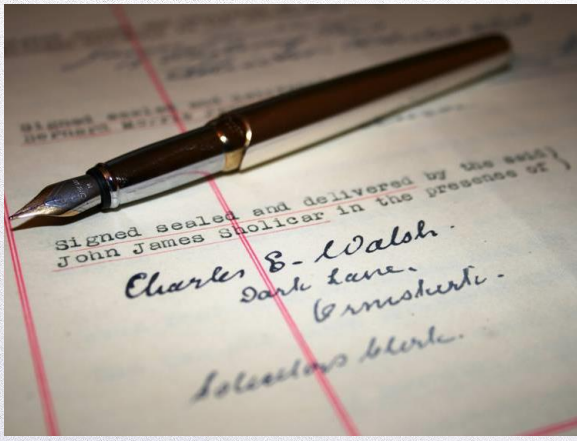 Signed sealed and
Bernard
Signed sealed and delivered by the said)
John James Sholicar in the presence of )
Charles E- Walsh.
Dark Lane.
Ormskirk.
Solicitors Clerk.